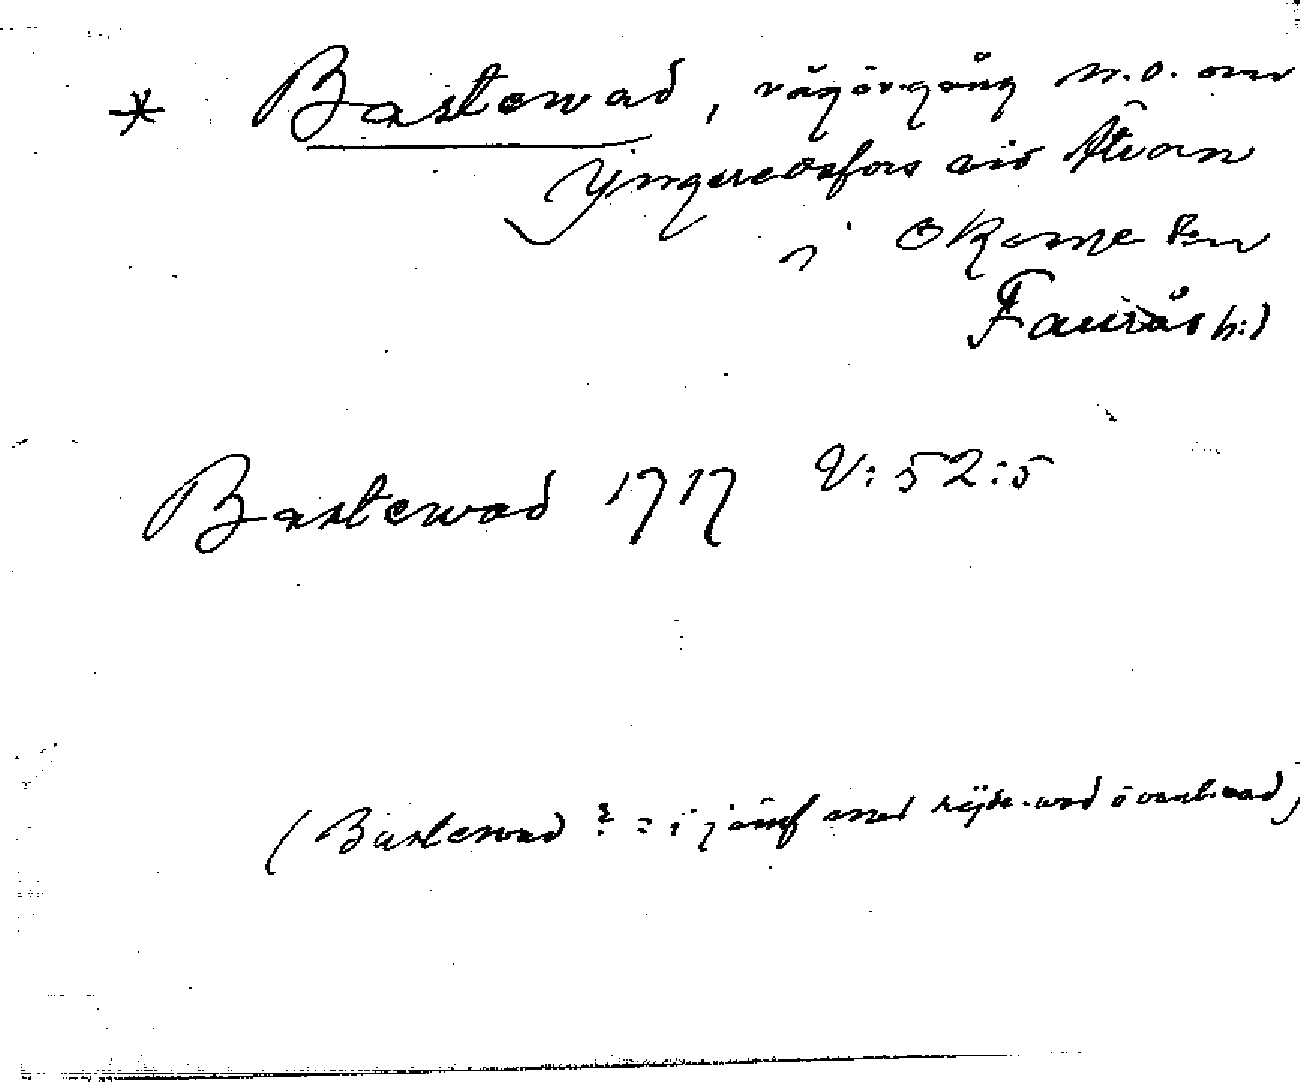 * Bastewad, vägövergång n.o. om
Yngeredsfors vid Ätran
i Okome sn
Faurås hd
Bastewad 1717 V: 52:5
(Bastewad ? = i jämf med